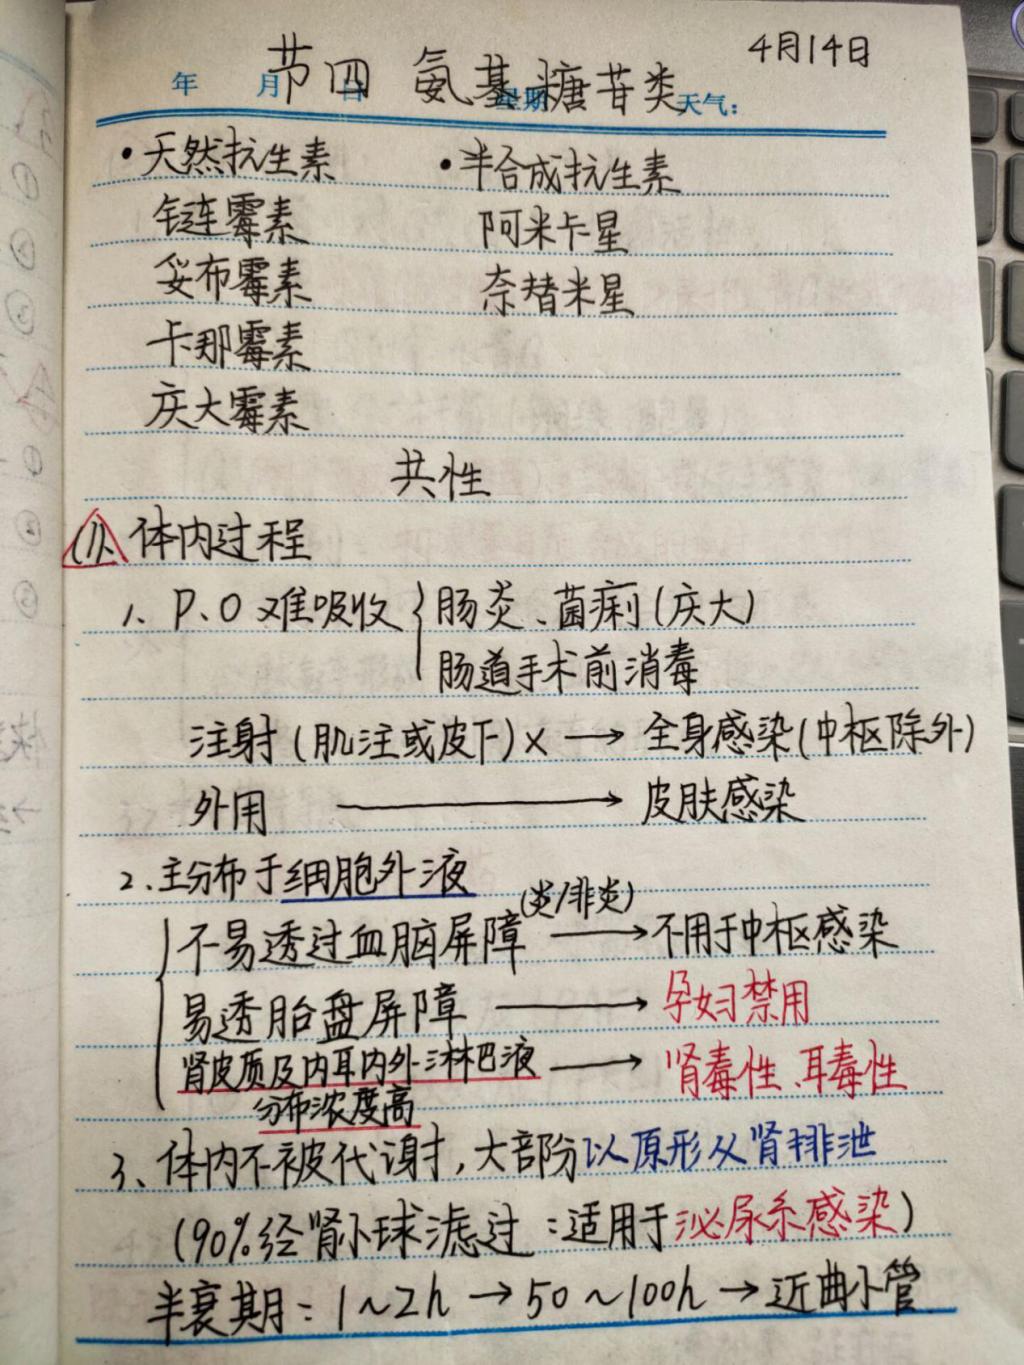 4月14日
节四 氨基糖苷类
年 月 日 星期 天气:
·天然抗生素 ·半合成抗生素
链霉素 阿米卡星
妥布霉素 奈替米星
卡那霉素
庆大霉素
共性
(1)、体内过程
1、P.O难吸收{肠炎、菌痢(庆大)
肠道手术前消毒
注射(肌注或皮下)× → 全身感染(中枢除外)
外用 → 皮肤感染
2、主分布于细胞外液
不易透过血脑屏障(炎/非炎) → 不用于中枢感染
易透胎盘屏障 → 孕妇禁用
肾皮质及内耳内外淋巴液 → 肾毒性、耳毒性
分布浓度高
3、体内不被代谢,大部份以原形从肾排泄
(90%经肾小球滤过:适用于泌尿系感染)
半衰期:1~2h → 50~100h → 近曲小管